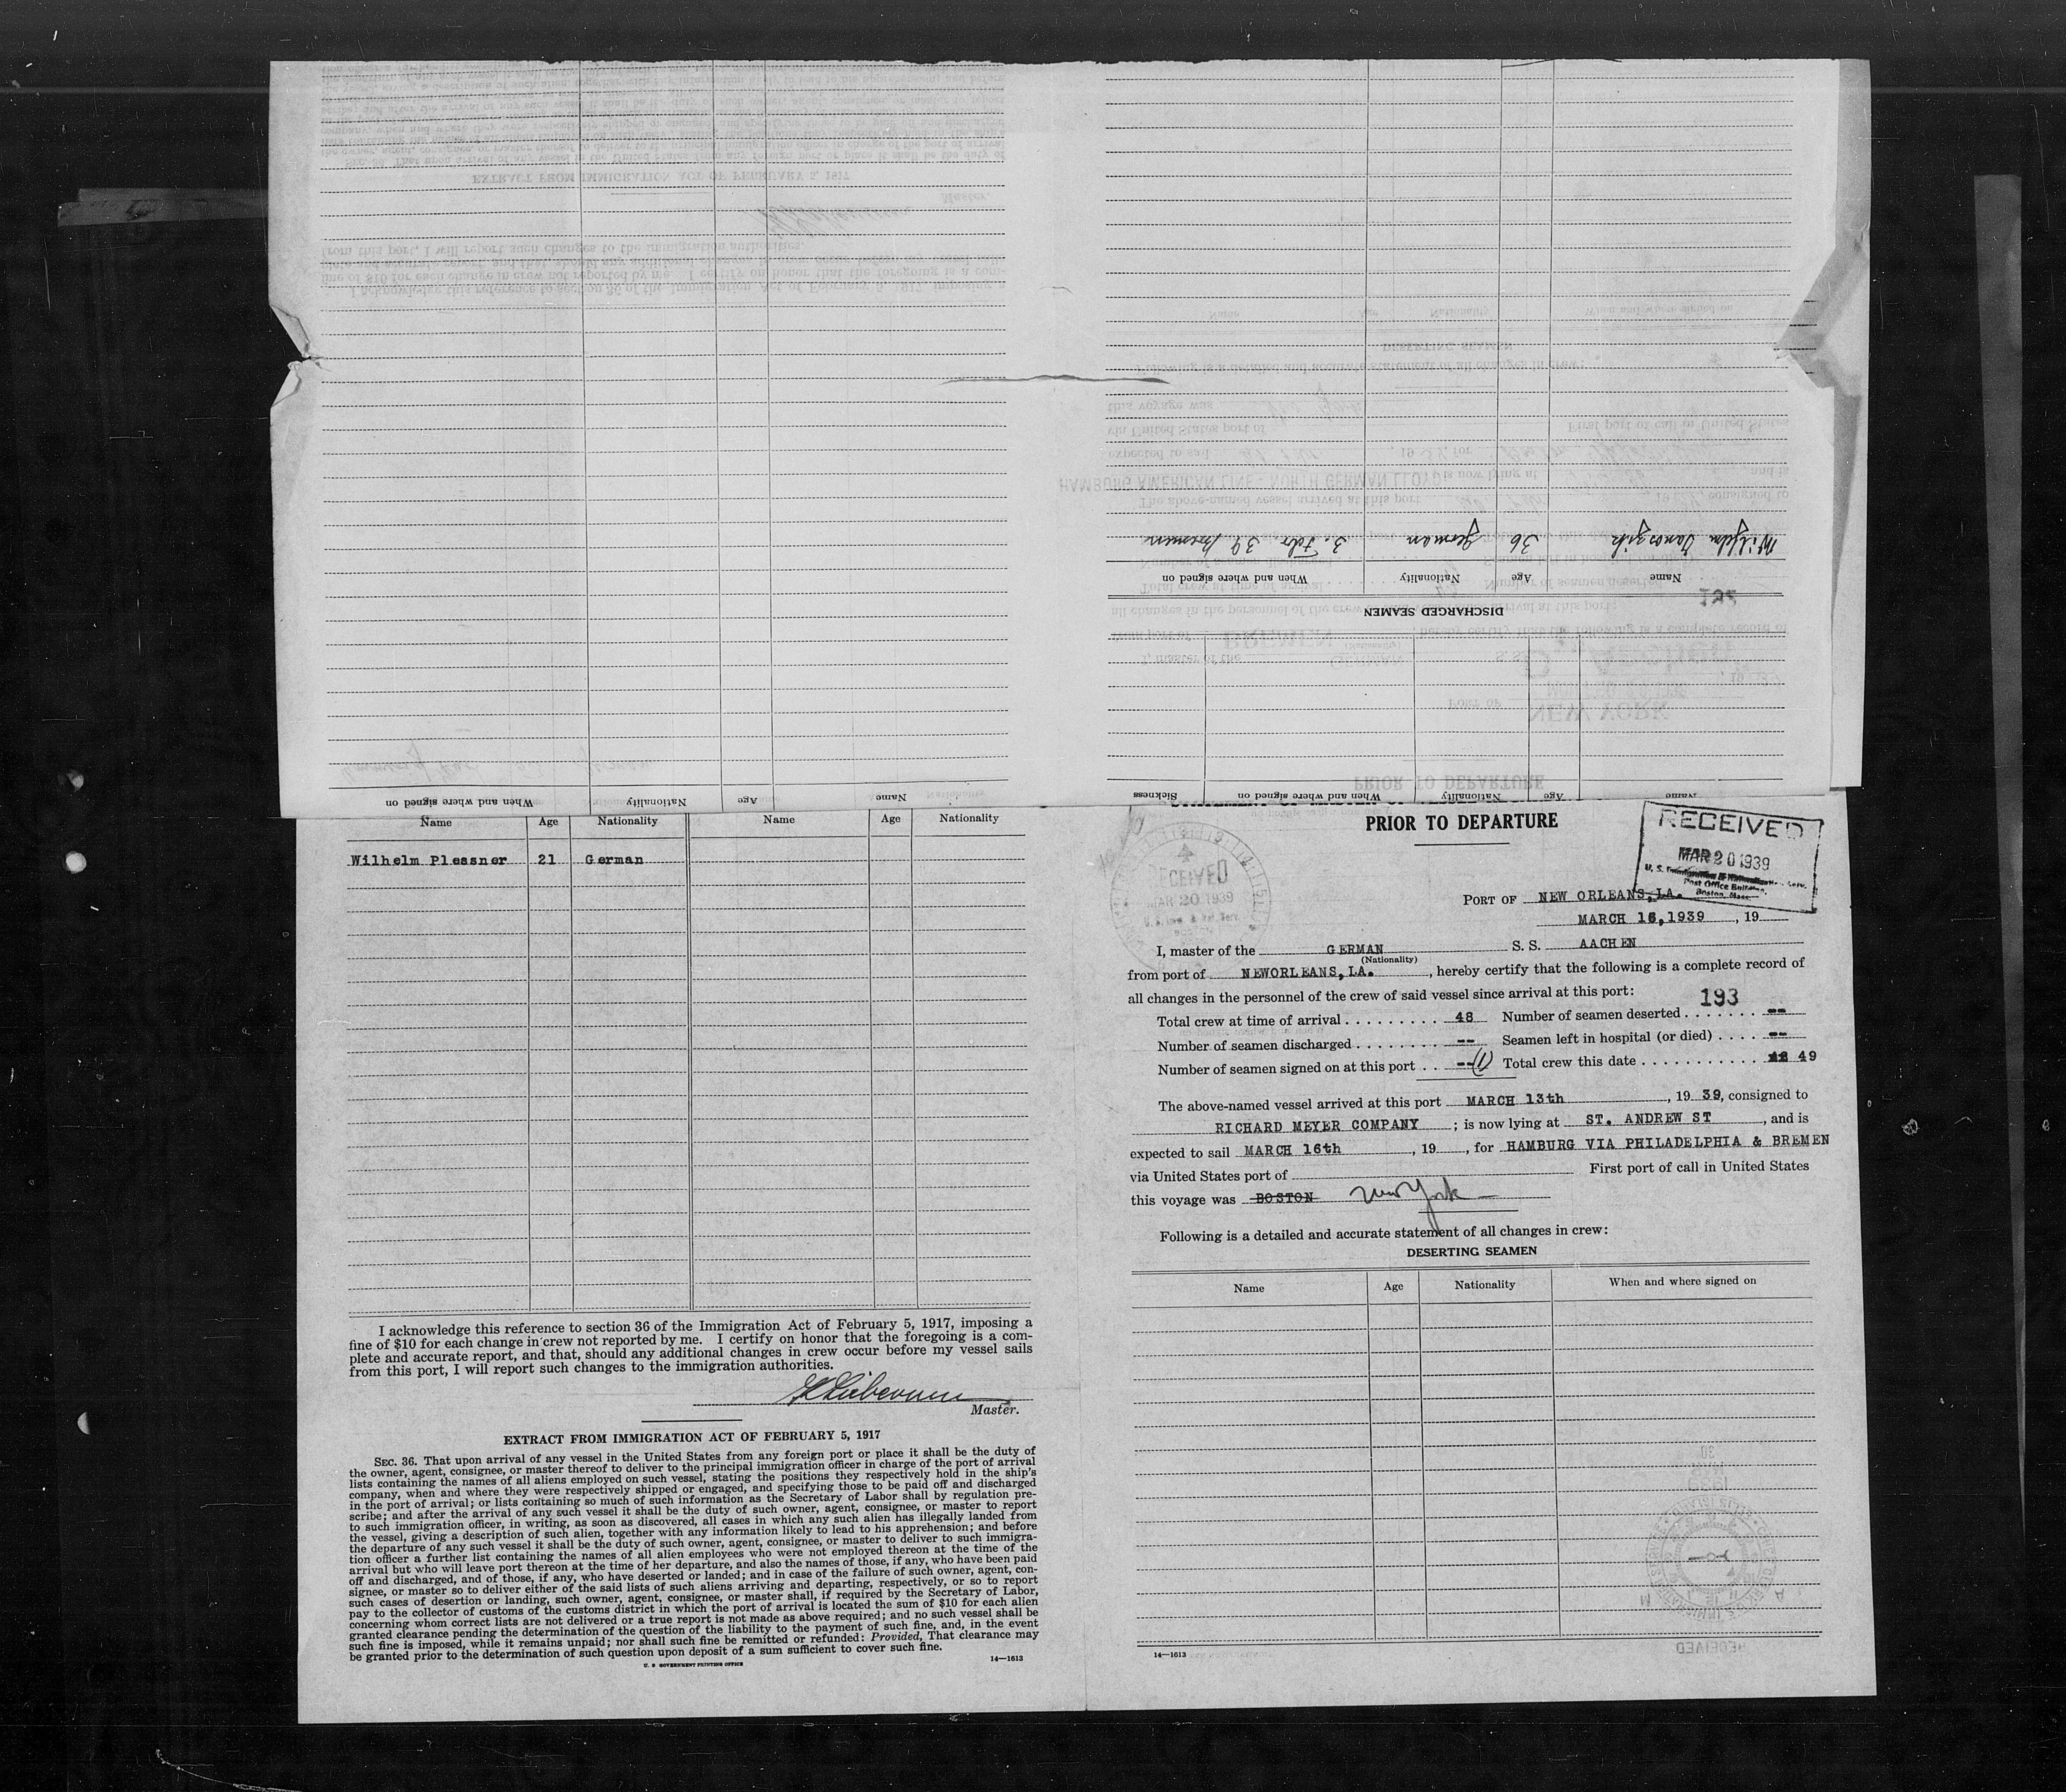 When and where signed on	Nationality	Age	Name
Wilhelm	36	German	3. Febr. 39 Bremen
Name	Age	Nationality	When and where signed on
DISCHARGED SEAMEN
Name	Age	Nationality	When and where signed on	Sickness
Name	Age	Nationality	Name	Age	Nationality
Wilhelm Plessner	21	German
I acknowledge this reference to section 36 of the Immigration Act of February 5, 1917, imposing a
fine of $10 for each change in crew not reported by me. I certify on honor that the foregoing is a com-
plete and accurate report, and that, should any additional changes in crew occur before my vessel sails
from this port, I will report such changes to the immigration authorities.
Master.
EXTRACT FROM IMMIGRATION ACT OF FEBRUARY 5, 1917
SEC. 36. That upon arrival of any vessel in the United States from any foreign port or place it shall be the duty of
the owner, agent, consignee, or master thereof to deliver to the principal immigration officer in charge of the port of arrival
lists containing the names of all aliens employed on such vessel, stating the positions they respectively hold in the ship's
company, when and where they were respectively shipped or engaged, and specifying those to be paid off and discharged
in the port of arrival; or lists containing so much of such information as the Secretary of Labor shall by regulation pre-
scribe; and after the arrival of any such vessel it shall be the duty of such owner, agent, consignee, or master to report
to such immigration officer, in writing, as soon as discovered, all cases in which any such alien has illegally landed from
the vessel, giving a description of such alien, together with any information likely to lead to his apprehension; and before
the departure of any such vessel it shall be the duty of such owner, agent, consignee, or master to deliver to such immigra-
tion officer a further list containing the names of all alien employees who were not employed thereon at the time of the
arrival but who will leave port thereon at the time of her departure, and also the names of those, if any, who have been paid
off and discharged, and of those, if any, who have deserted or landed; and in case of the failure of such owner, agent, con-
signee, or master so to deliver either of the said lists of such aliens arriving and departing, respectively, or so to report
such cases of desertion or landing, such owner, agent, consignee, or master shall, if required by the Secretary of Labor,
pay to the collector of customs of the customs district in which the port of arrival is located the sum of $10 for each alien
concerning whom correct lists are not delivered or a true report is not made as above required; and no such vessel shall be
granted clearance pending the determination of the question of the liability to the payment of such fine, and, in the event
such fine is imposed, while it remains unpaid; nor shall such fine be remitted or refunded: Provided, That clearance may
be granted prior to the determination of such question upon deposit of a sum sufficient to cover such fine.
U. S. GOVERNMENT PRINTING OFFICE	14—1613
PRIOR TO DEPARTURE
RECEIVED
MAR 20 1939
Post Office Building,
Boston, Mass.
RECEIVED
MAR 20 1939
PORT OF NEW ORLEANS, LA.
MARCH 16, 1939, 19
I, master of the GERMAN S. S. AACHEN
(Nationality)
from port of NEWORLEANS, LA., hereby certify that the following is a complete record of
all changes in the personnel of the crew of said vessel since arrival at this port:
193
Total crew at time of arrival . . . . . . . . . . 48 Number of seamen deserted . . . . . . . --
Number of seamen discharged . . . . . . . . -- Seamen left in hospital (or died) . . . . --
Number of seamen signed on at this port . . --(1) Total crew this date . . . . . . . . . . . 49
The above-named vessel arrived at this port MARCH 13th, 19 39, consigned to
RICHARD MEYER COMPANY; is now lying at ST. ANDREW ST, and is
expected to sail MARCH 16th, 19, for HAMBURG VIA PHILADELPHIA & BREMEN
via United States port of First port of call in United States
this voyage was BOSTON New York
Following is a detailed and accurate statement of all changes in crew:
DESERTING SEAMEN
Name	Age	Nationality	When and where signed on
14—1613